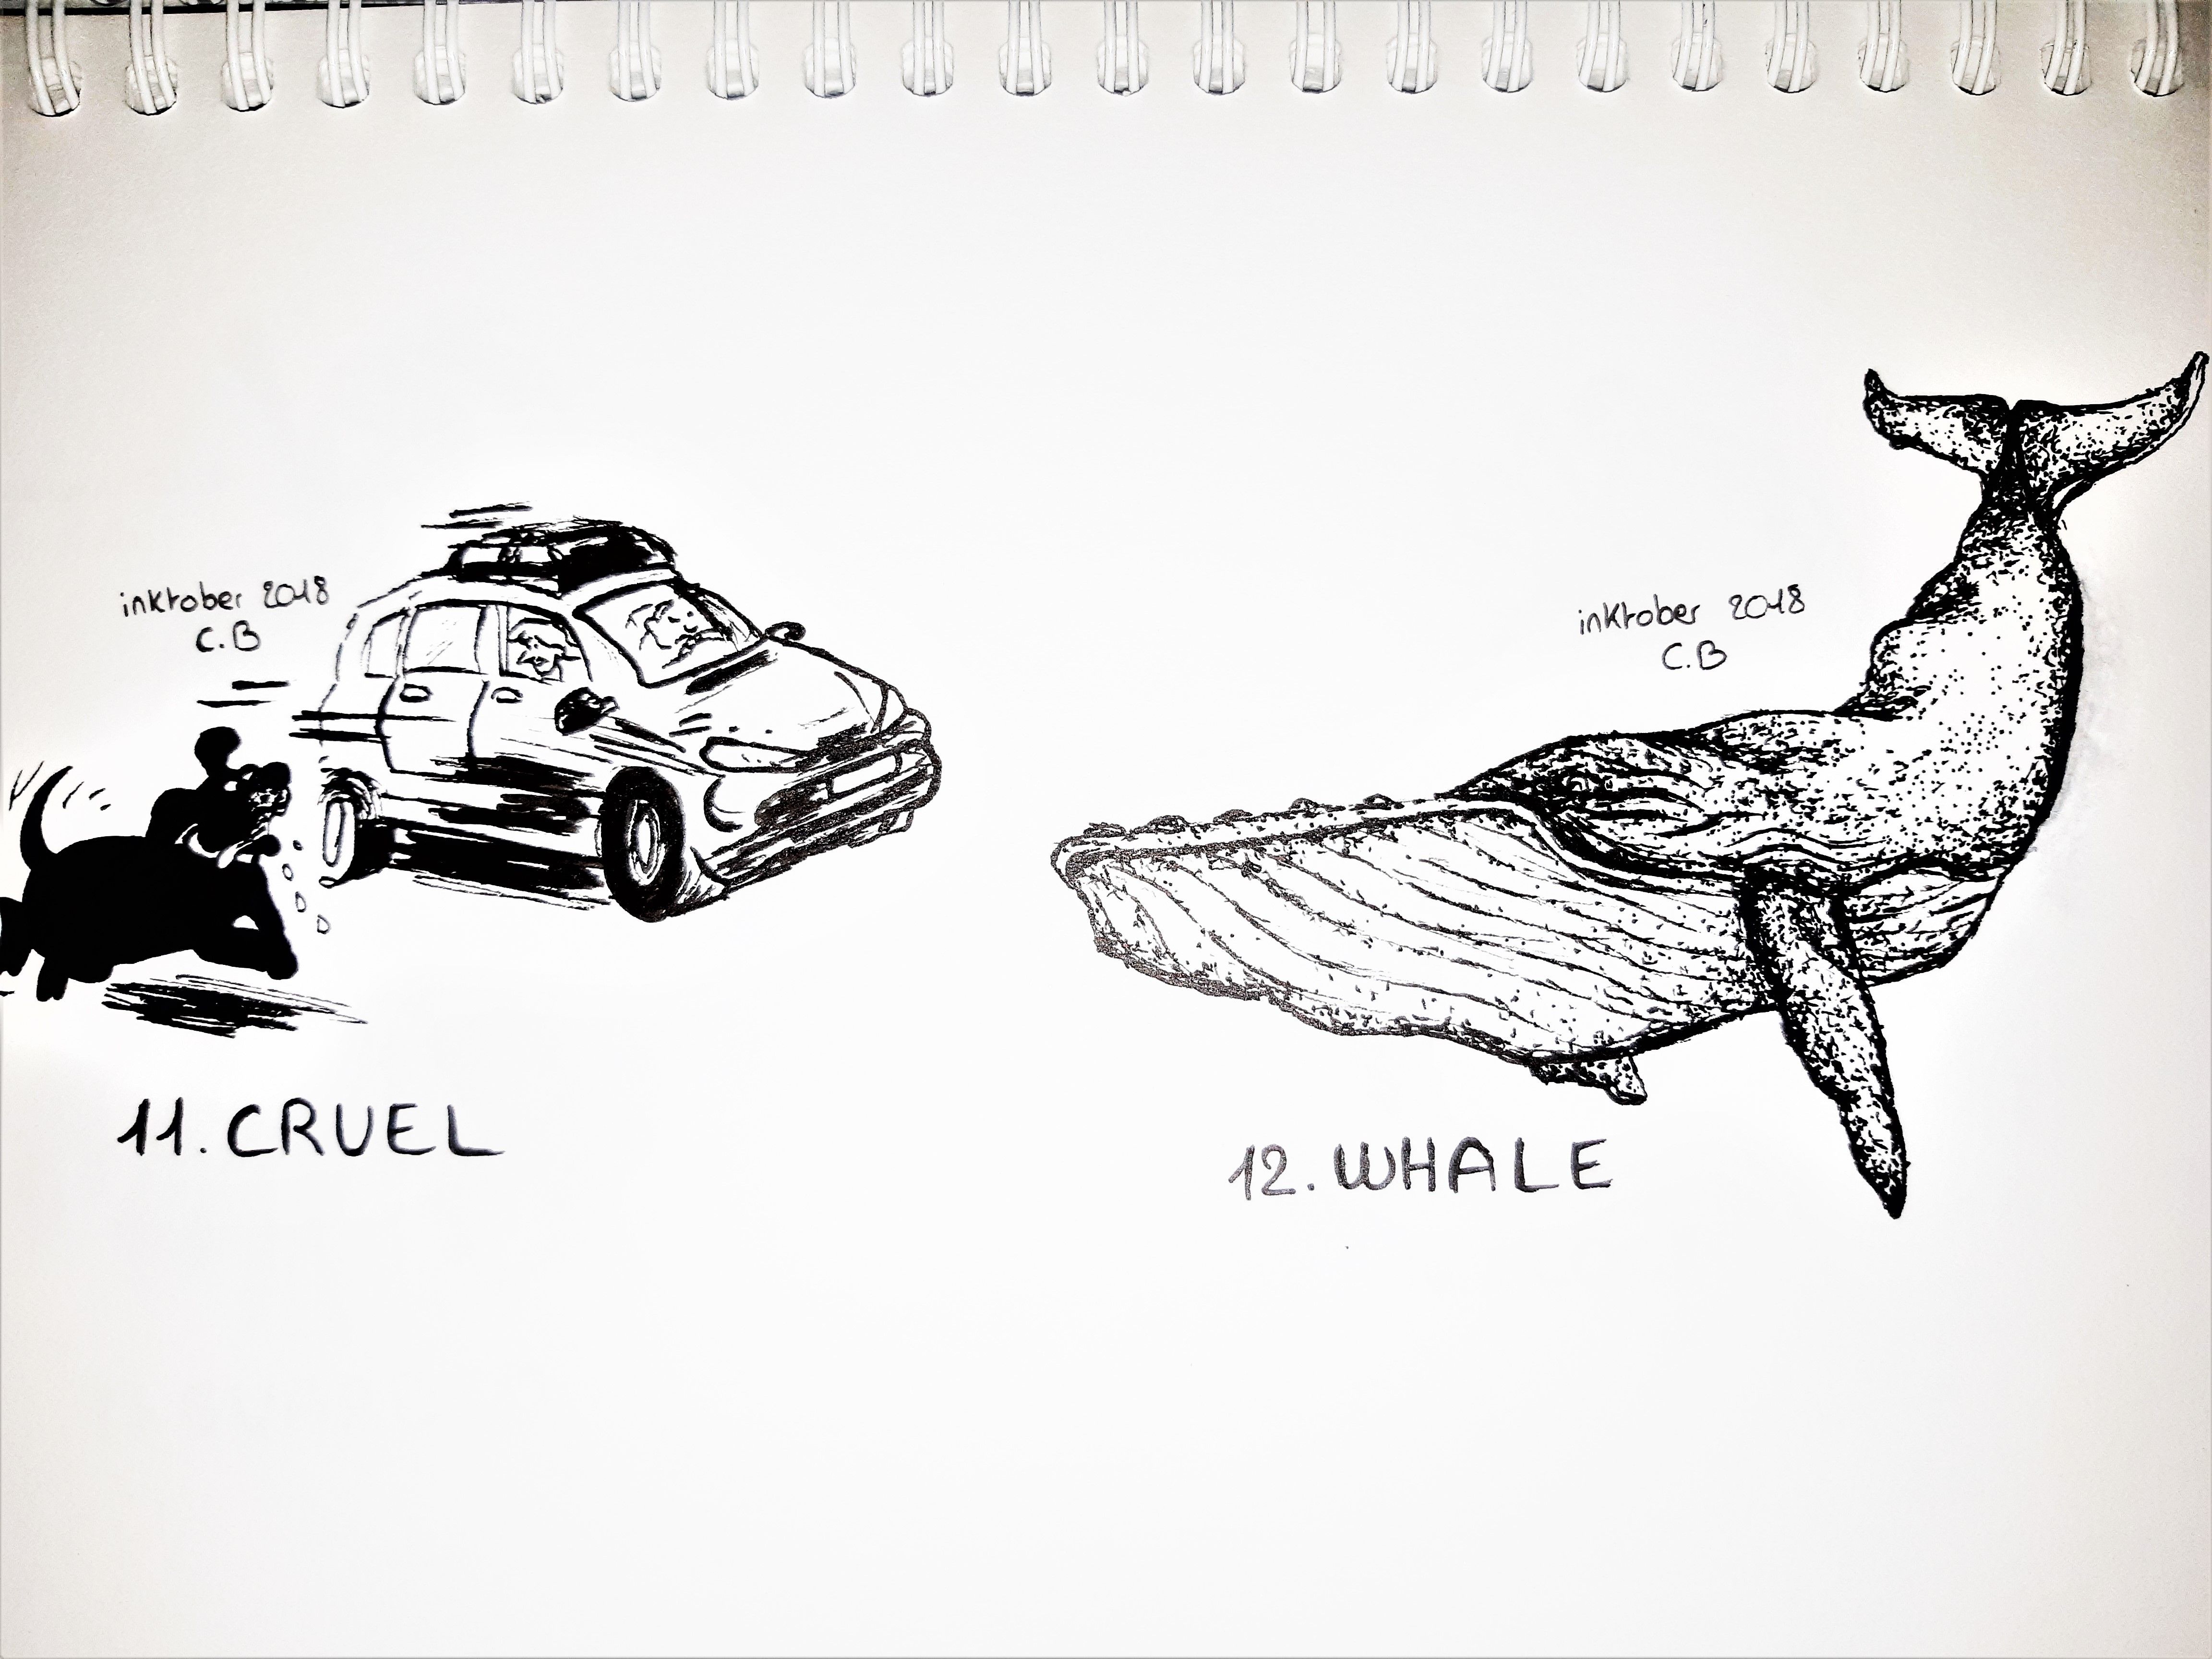 inktober 2018
C.B
11. CRUEL
inktober 2018
C.B
12. WHALE